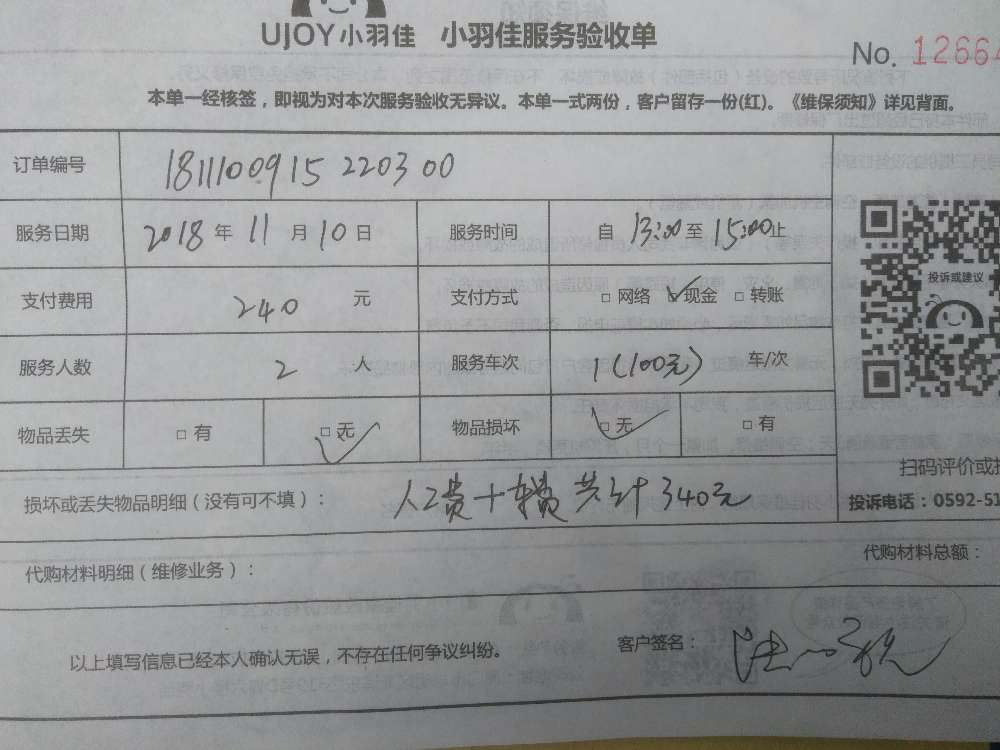 UJOY小羽佳 小羽佳服务验收单
No. 12664
本单一经核签，即视为对本次服务验收无异议。本单一式两份，客户留存一份(红)。《维保须知》详见背面。
订单编号 18111009 15 2203 00
服务日期 2018 年 11 月 10 日 服务时间 自 13:00 至 15:00 止
投诉或建议
支付费用 240 元 支付方式 □ 网络 ✓ 现金 □ 转账
服务人数 2 人 服务车次 1(100元) 车/次
物品丢失 □ 有 □ 无 物品损坏 □ 无 □ 有
扫码评价或投
损坏或丢失物品明细（没有可不填）： 人工费＋车费 共计340元
投诉电话：0592-51
代购材料明细（维修业务）： 代购材料总额：
以上填写信息已经本人确认无误，不存在任何争议纠纷。 客户签名：